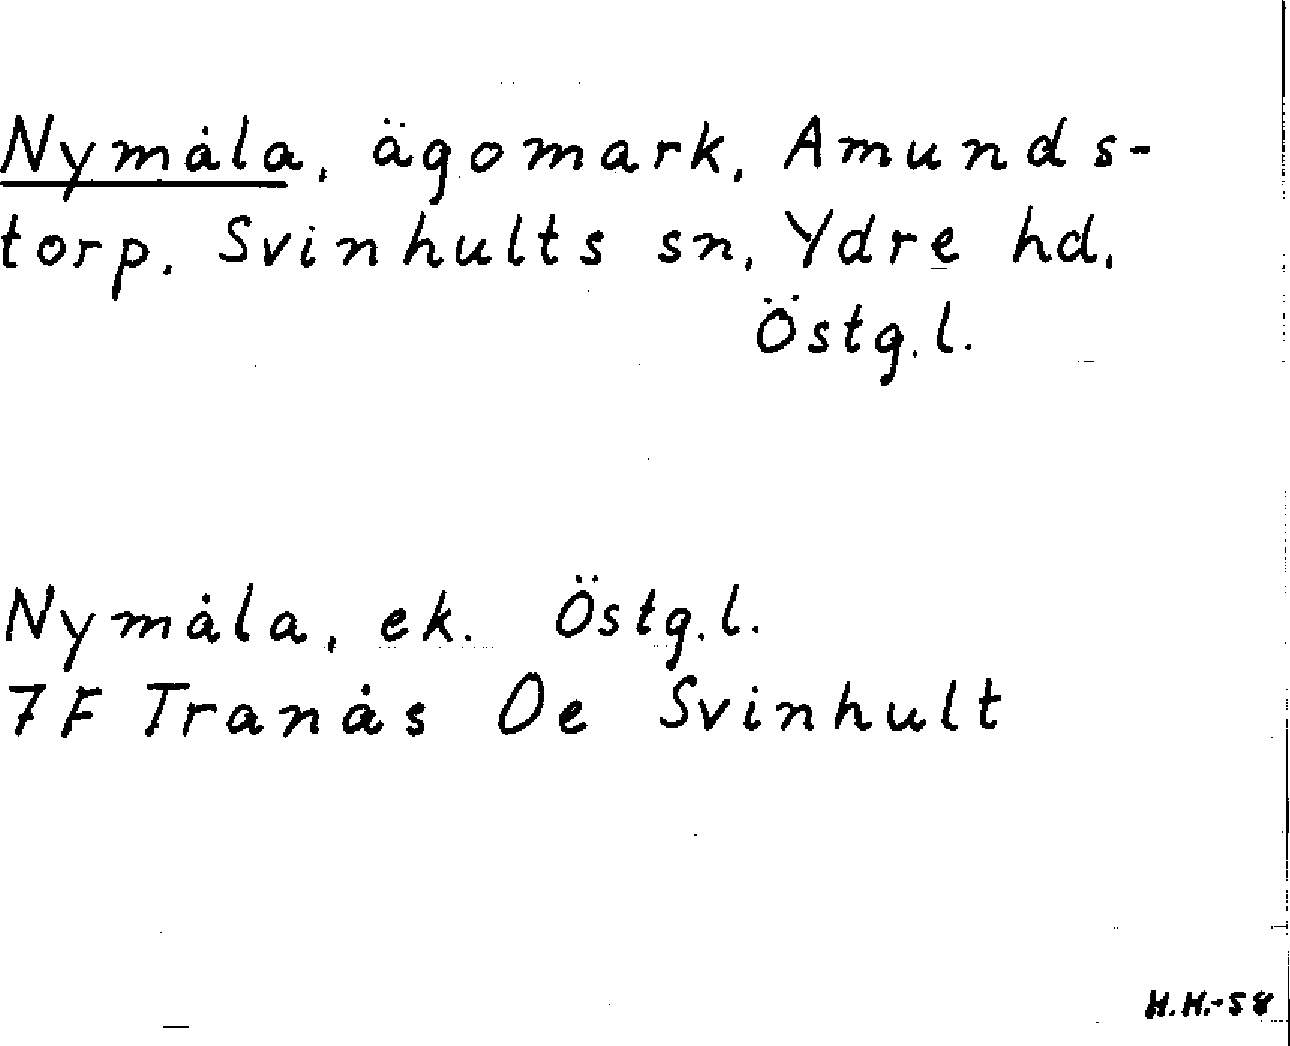 Nymåla, ägomark, Amunds-
torp, Svinhults sn, Ydre hd,
Östg.l.
Nymåla, ek. Östg.l.
7F Tranås 0e Svinhult
H.H.-58